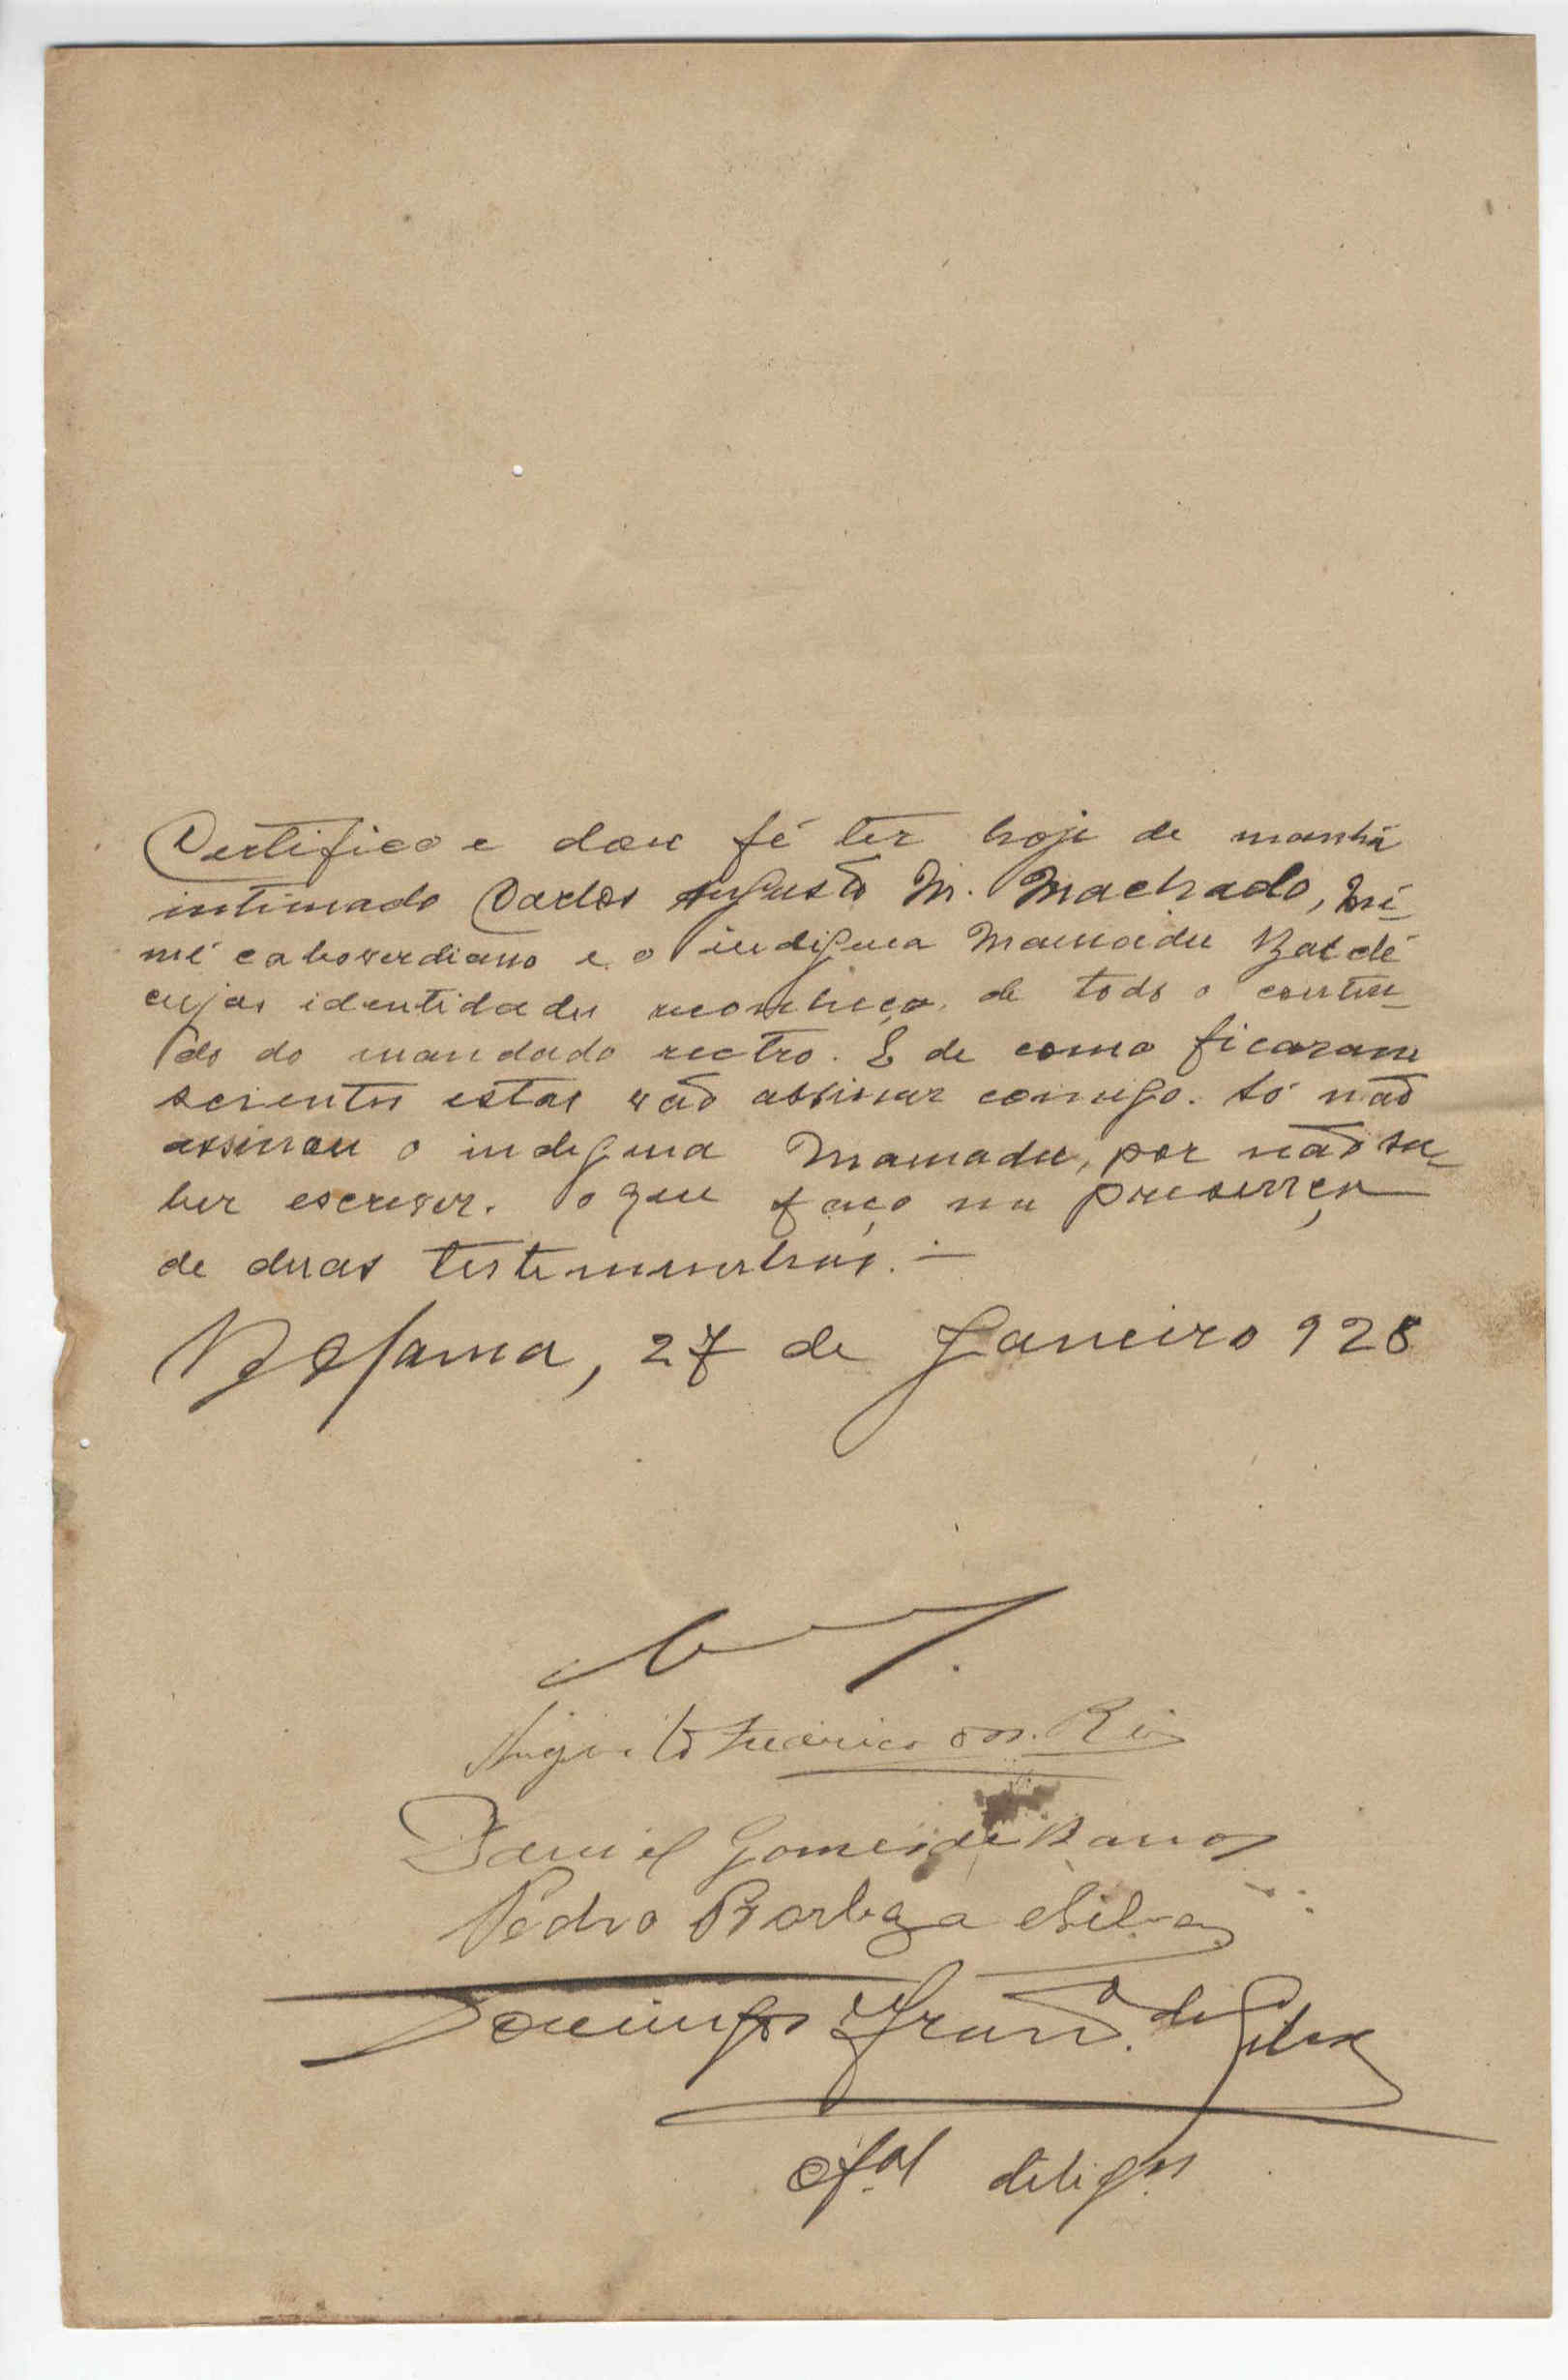 Certifico e dou fé ter hoje de manhã
intimado Carlos Augusto M. Machado,
mé caboverdiano e o indigena Mamadu Baldé
cujas identidades reconheço, de todo o conteu-
do do mandado rectro. E de como ficaram
scientes estas vão assinar comigo. Só não
assinou o indegena Mamadu, por não sa-
ber escrever. O que faço na presença
de duas testemunhas. —
Bolama, 27 de Janeiro 928
Augusto
Daniel Gomes de Barros
Pedro Barboza e Silva
Domingos Fran.co da Silva
Of.al dilig.as